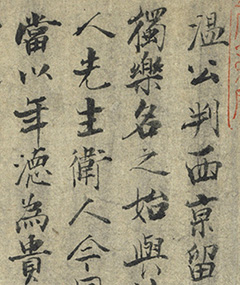 温公判西京留
獨樂名之始與
人先主衛人今
當以年德為貴